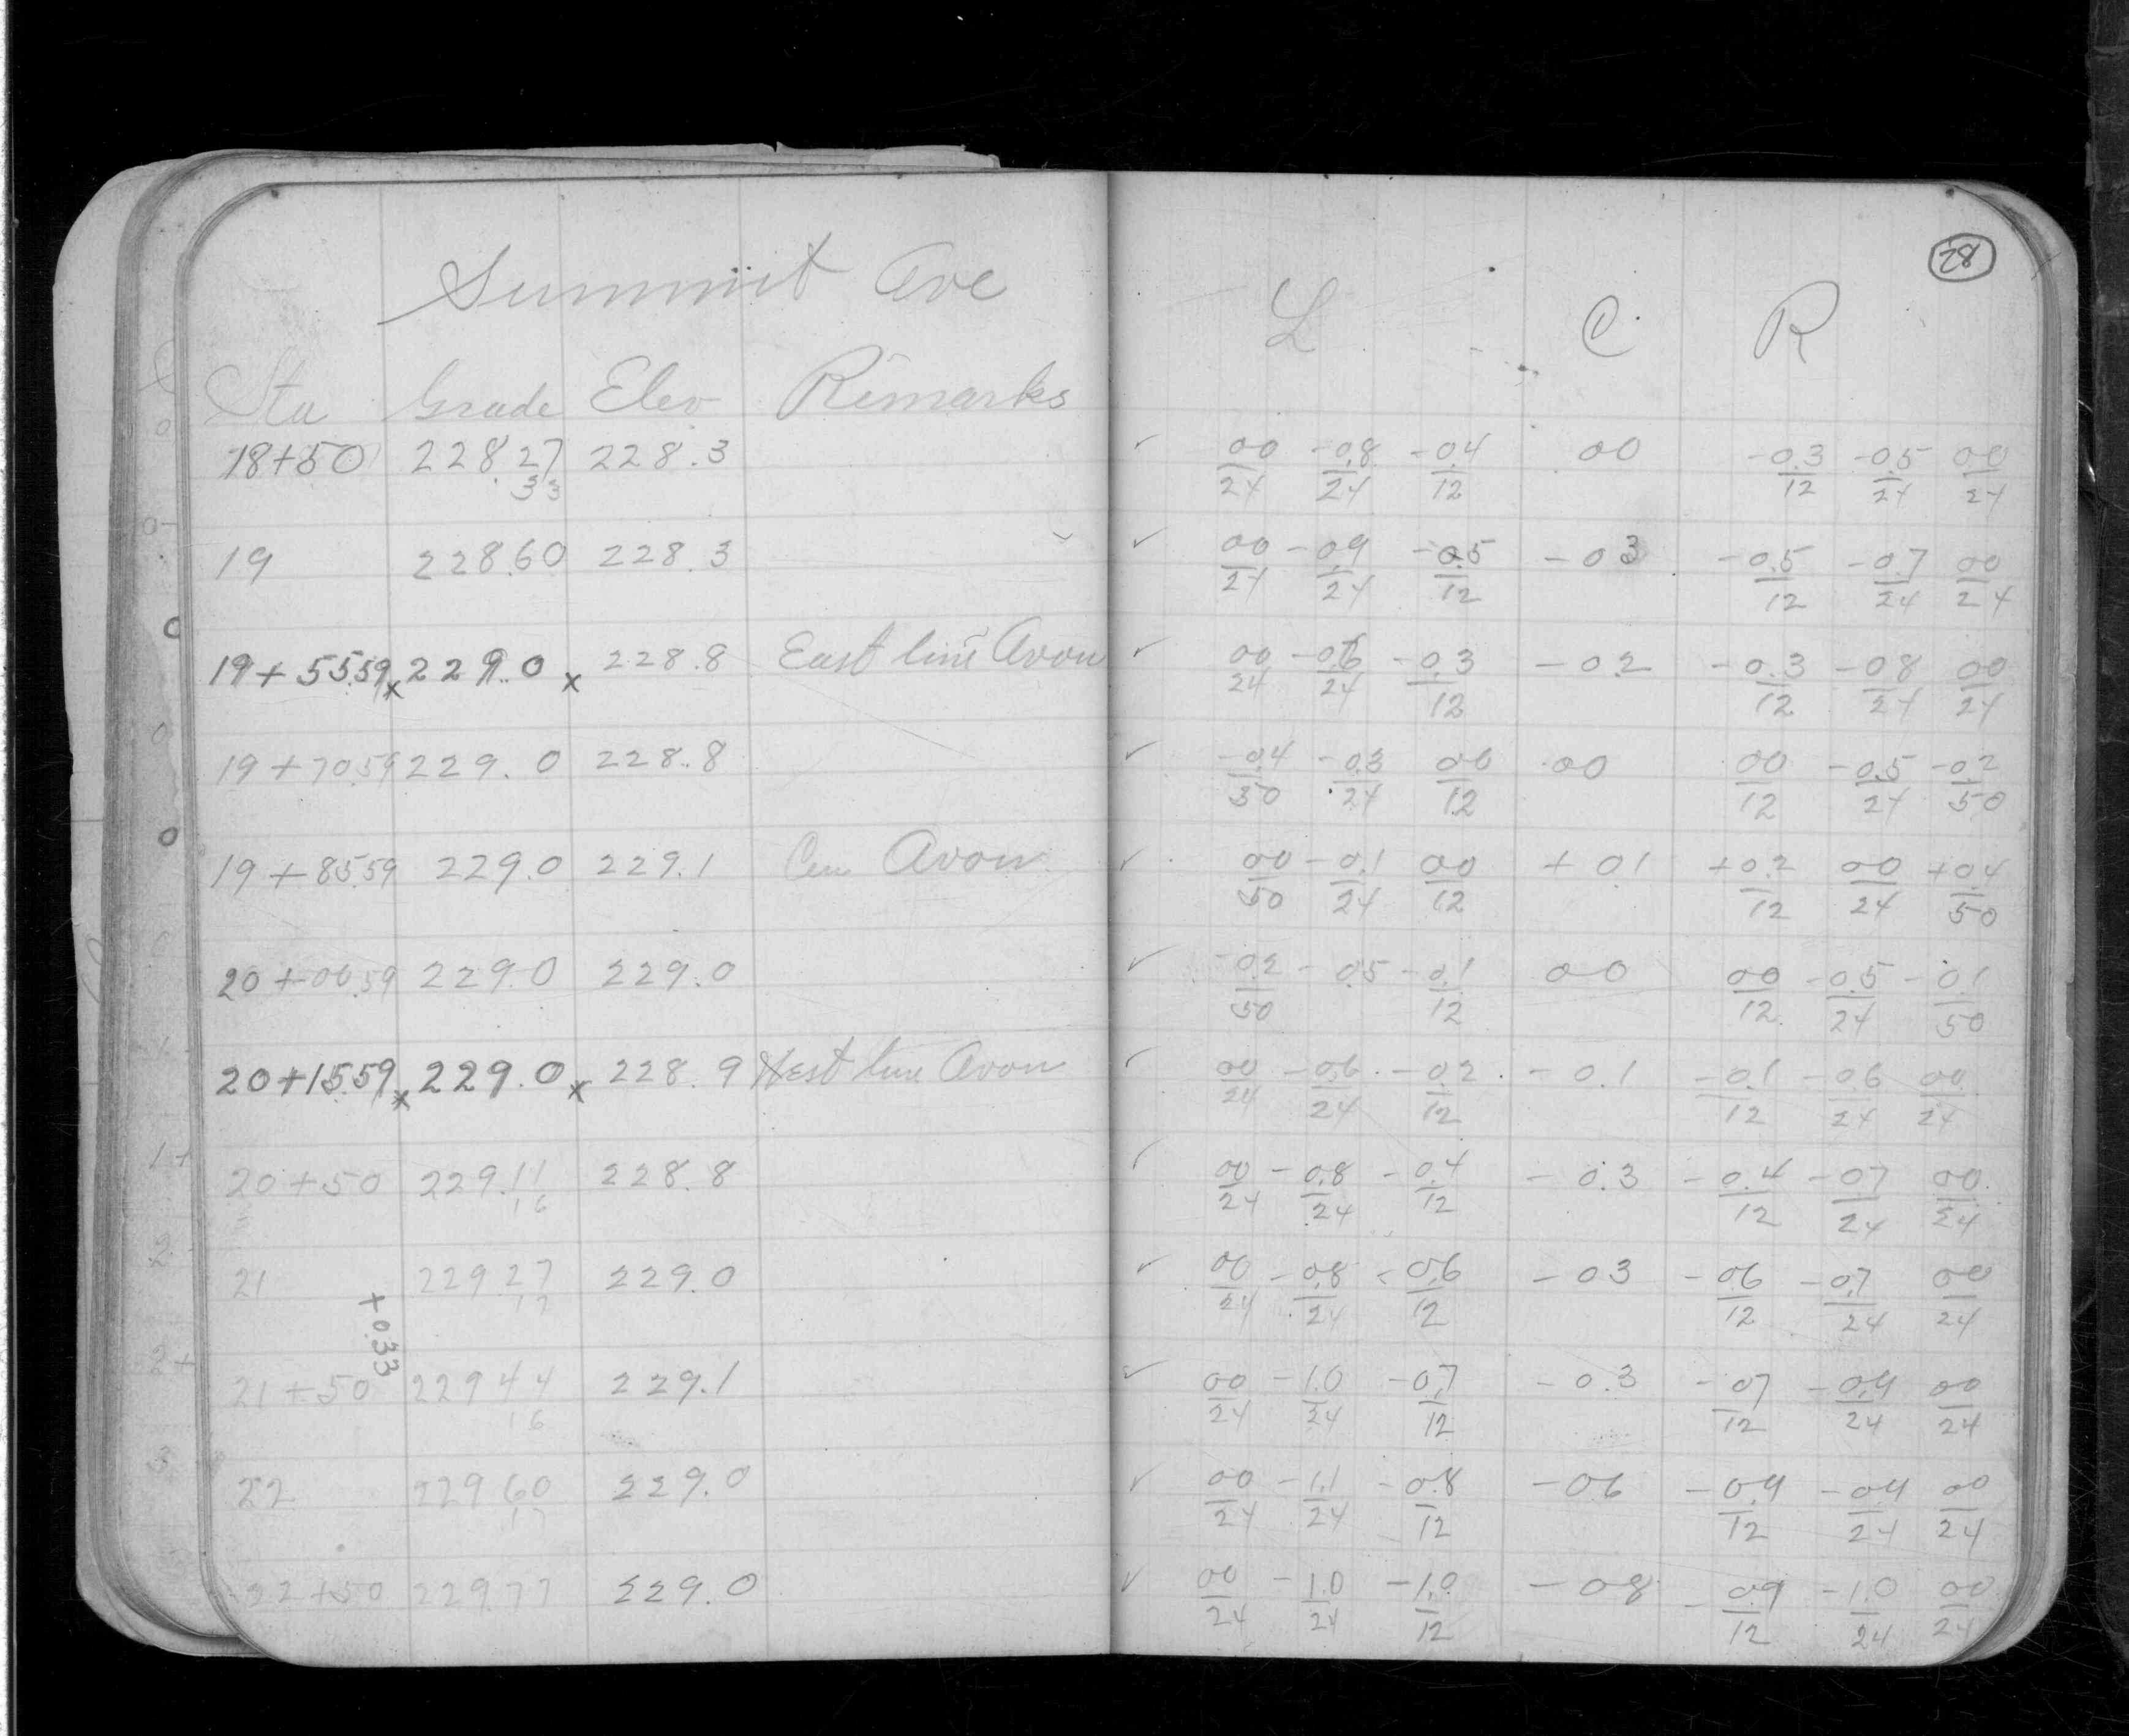 28
Summit Ave
L C R
Sta Grade Elev Remarks
18+50 228.27 228.3 ✓ 00/24 -0.8/24 -0.4/12 00 -0.3/12 -0.5/24 00/24
33
19 228.60 228.3 ✓ 00/24 -0.9/24 -0.5/12 -0.3 -0.5/12 -0.7/24 00/24
19+55.59 x 229.0 x 228.8 East line Avon ✓ 00/24 -0.6/24 -0.3/12 -0.2 -0.3/12 -0.8/24 00/24
19+70.59 229.0 228.8 ✓ -0.4/50 -0.3/24 00/12 00 00/12 -0.5/24 -0.2/50
19+85.59 229.0 229.1 Cen Avon ✓ 00/50 -0.1/24 00/12 +0.1 +0.2/12 00/24 +0.4/50
20+00.59 229.0 229.0 ✓ -0.2/50 -0.5 -0.1/12 00 00/12 -0.5/24 -0.1/50
20+15.59 x 229.0 x 228.9 West line Avon ✓ 00/24 -0.6/24 -0.2/12 -0.1 -0.1/12 -0.6/24 00/24
20+50 229.11 228.8 ✓ 00/24 -0.8/24 -0.4/12 -0.3 -0.4/12 -0.7/24 00/24
16
21 229.27 229.0 ✓ 00/24 -0.8/24 -0.6/12 -0.3 -0.6/12 -0.7/24 00/24
17
+0.33
21+50 229.44 229.1 ✓ 00/24 -1.0/24 -0.7/12 -0.3 -0.7/12 -0.9/24 00/24
16
22 229.60 229.0 ✓ 00/24 -1.1/24 -0.8/12 -0.6 -0.9/12 -0.9/24 00/24
17
22+50 229.77 229.0 ✓ 00/24 -1.0/24 -1.0/12 -0.8 -0.9/12 -1.0/24 00/24